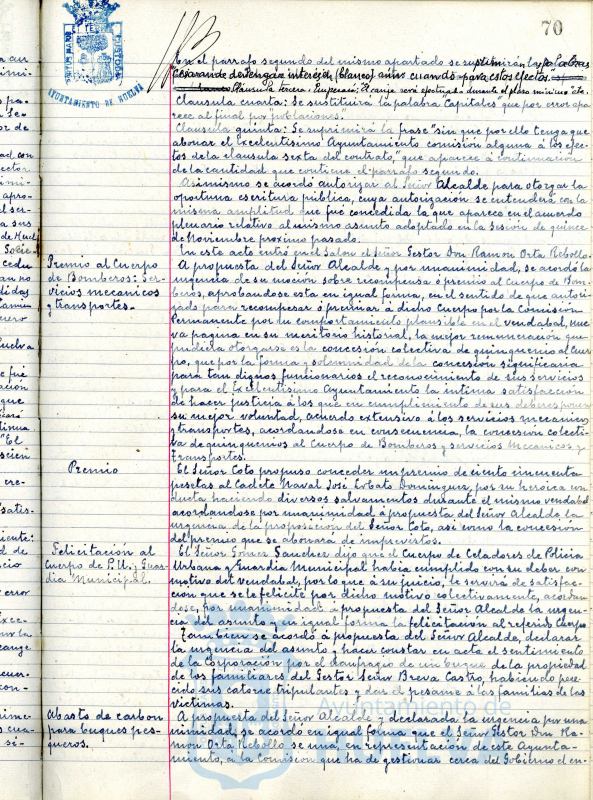 70
AYUNTAMIENTO DE HUELVA
En el párrafo segundo del mismo apartado se suprimirán las palabras
Clausula cuarta: Se sustituirá la palabra "Capitales" que por error apa-
rece al final por "poblaciones.
Clausula quinta: Se suprimirá la frase "sin que por ello tenga que
abonar el Excelentísimo Ayuntamiento comisión alguna á los efec-
tos de la clausula sexta del contrato," que aparece á continuación
de la cantidad que contiene el párrafo segundo.
Asimismo se acordó autorizar al Señor Alcalde para otorgar la
oportuna escritura pública, cuya autorización se entenderá con la
misma amplitud que fué concedida la que aparece en el acuerdo
plenario relativo al mismo asunto adoptado en la Sesión de quince
de Noviembre próximo pasado.
En este acto entró en el Salon el Señor Gestor Don Ramon Orta Rebollo.
Premio al Cuerpo
de Bomberos: Ser-
vicios mecanicos
y transportes.
A propuesta del Señor Alcalde y por unanimidad, se acordó la
urgencia de su moción sobre recompensa ó premio al Cuerpo de Bom-
beros, aprobandose esta en igual forma, en el sentido de que autori-
zado para recompensar ó premiar á dicho Cuerpo por la Comisión
Permanente por su comportamiento plausible en el vendabal, nue-
va página en su meritorio historial, la mejor remuneración que
pudiera otorgarse es la concesión colectiva de quinquenio al Cuer-
po, que por la forma y solemnidad de la concesión significaria
para tan dignos funcionarios el reconocimiento de sus servicios
y para el Excelentísimo Ayuntamiento la intima satisfacción
de hacer justicia á los que en cumplimiento de sus deberes ponen
su mejor voluntad, acuerdo extensivo á los servicios mecanicos
y transportes, acordandose en consecuencia, la concesion colecti-
va de quinquenios al Cuerpo de Bomberos y servicios Mecanicos y
Transportes.
Premio
El Señor Coto propuso conceder un premio de ciento cincuenta
pesetas al Cadete Naval José Lobato Dominguez, por su heroica con-
ducta haciendo diversos salvamentos durante el mismo vendabal
acordandose por unanimidad á propuesta del Señor Alcalde, la
urgencia de la proposición del Señor Coto, así como la concesión
del premio que se abonará de imprevistos.
Felicitación al
Cuerpo de P. U. y Guar-
dia Municipal.
El Señor Gomez Sanchez dijo que el Cuerpo de Celadores de Policia
Urbana y Guardia Municipal habia cumplido con su deber con
motivo del vendabal, por lo que á su juicio, le serviria de satisfac-
ción que se le felicite por dicho motivo colectivamente, acordan-
dose, por unanimidad á propuesta del Señor Alcalde la urgen-
cia del asunto y en igual forma la felicitación al referido Cuerpo.
Tambien se acordó á propuesta del Señor Alcalde, declarar
la urgencia del asunto y hacer constar en acta el sentimiento
de la Corporación por el naufragio de un buque de la propiedad
de los familiares del Gestor Señor Breva Castro, habiendo pere-
cido sus catorce tripulantes y dar el pesame á las familias de las
victimas.
Abasto de carbon
para buques pes-
queros.
A propuesta del Señor Alcalde y declarada la urgencia por una-
nimidad, se acordó en igual forma que el Señor Gestor Don Ra-
mon Orta Rebollo se una, en representación de este Ayunta-
miento, á la Comision que ha de gestionar cerca del Gobierno el en-
Ayuntamiento de